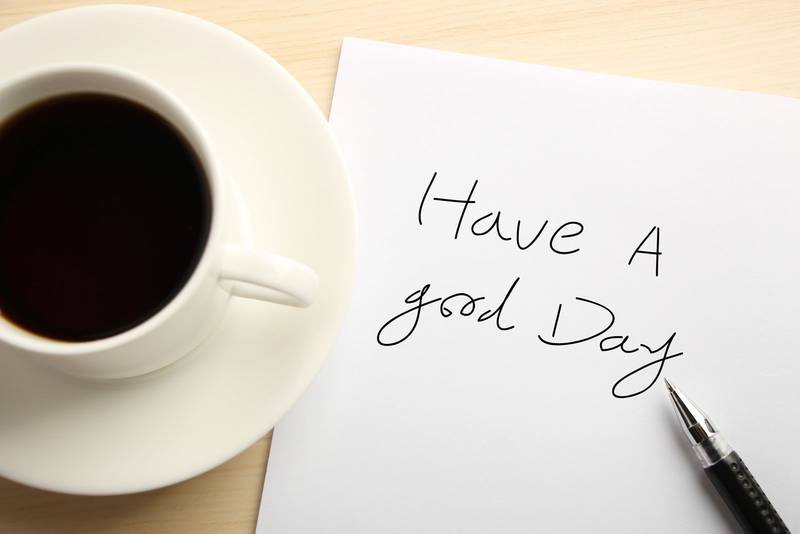 Have A
good Day